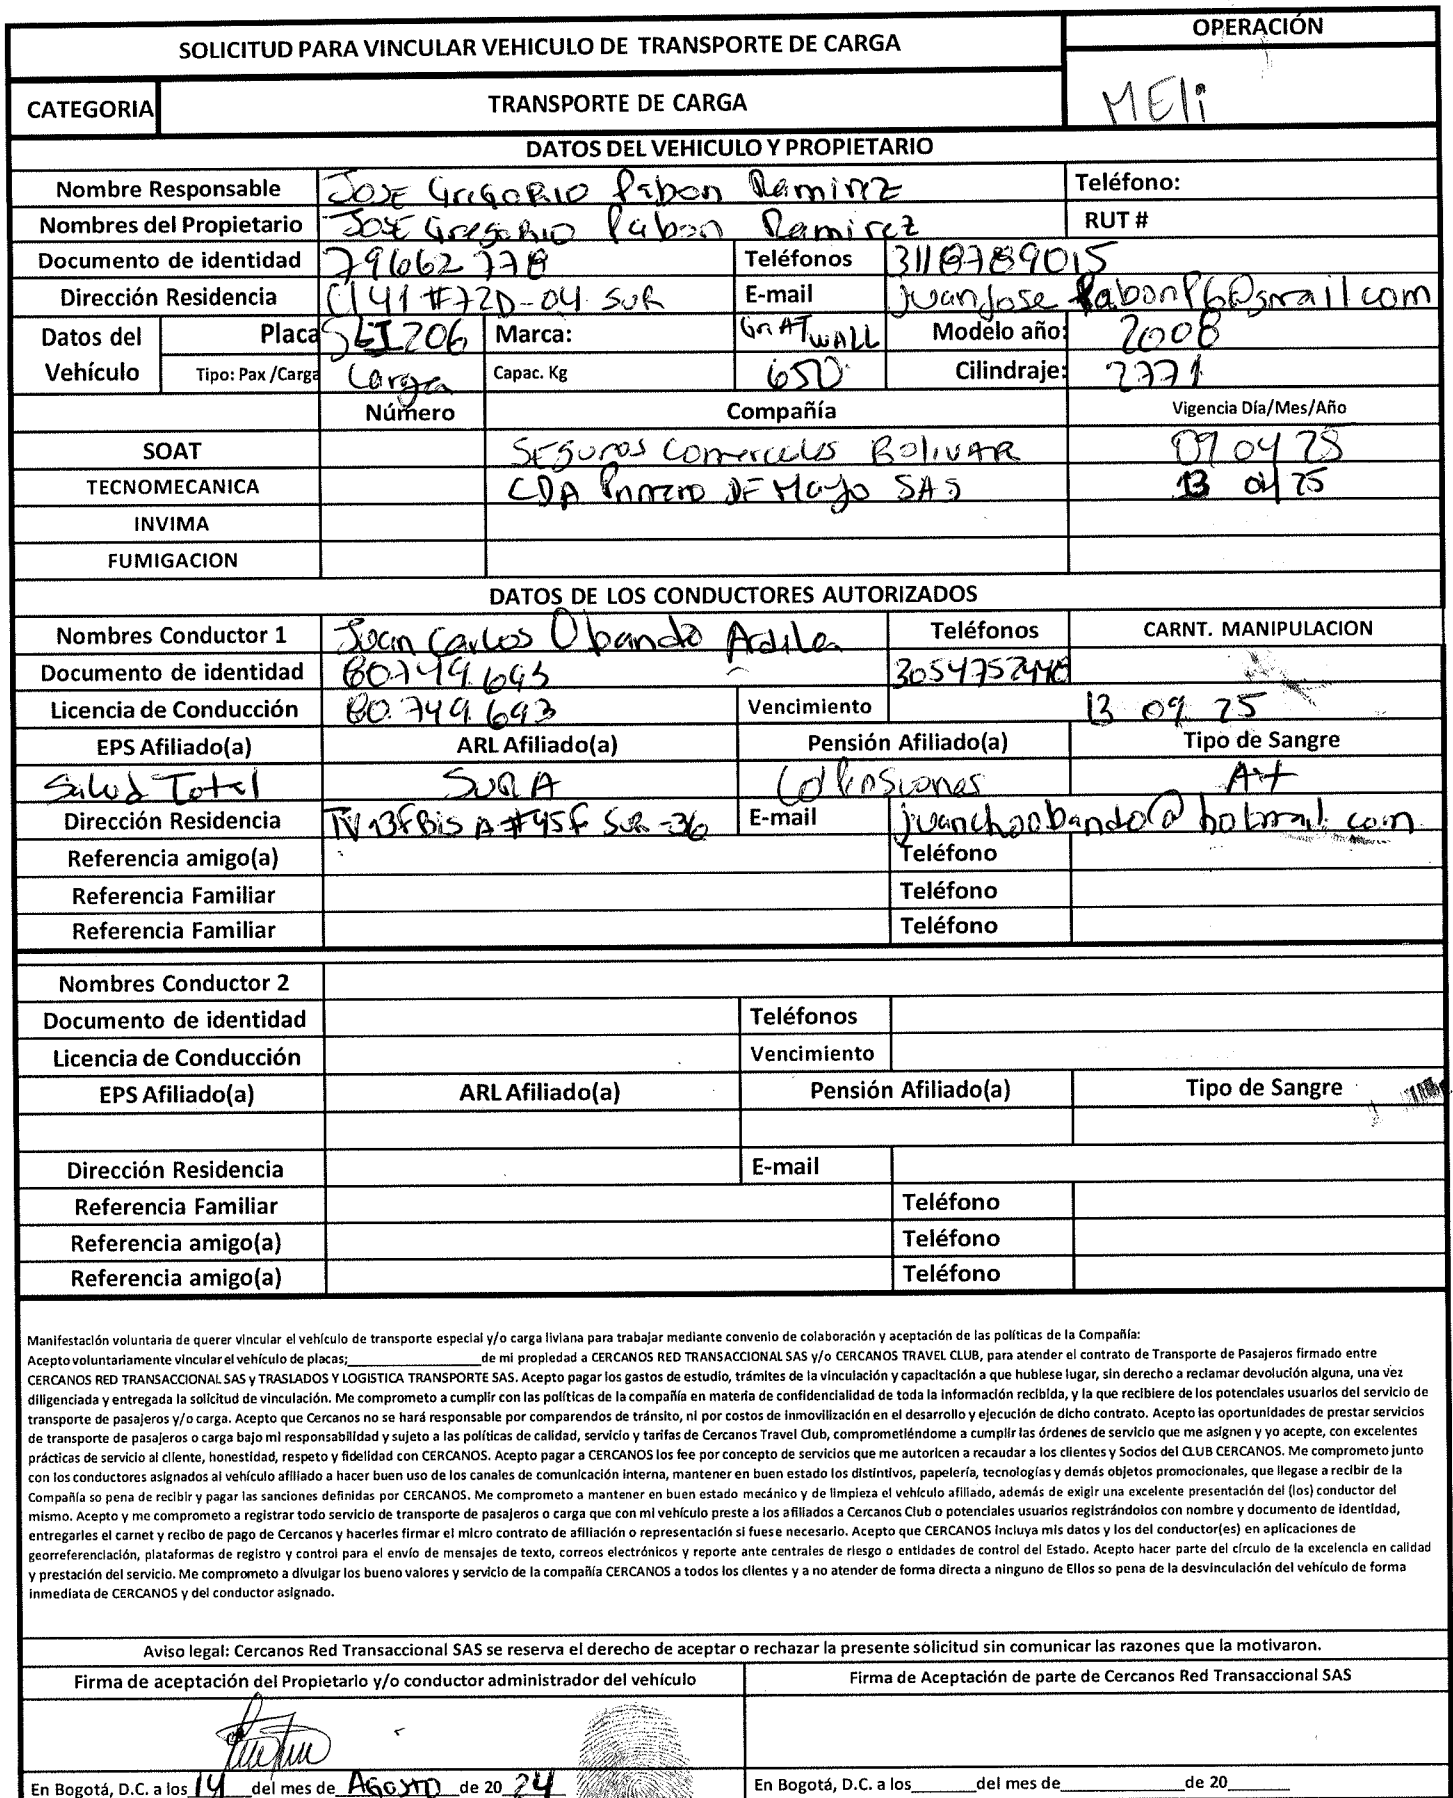 SOLICITUD PARA VINCULAR VEHICULO DE TRANSPORTE DE CARGA
OPERACIÓN
MEli
CATEGORIA TRANSPORTE DE CARGA
DATOS DEL VEHICULO Y PROPIETARIO
Nombre Responsable JOSE GREGORIO Pabon Ramirez Teléfono:
Nombres del Propietario JOSE GREGORIO Pabon Ramirez RUT #
Documento de identidad 79662778 Teléfonos 3118789015
Dirección Residencia Cl 41 #72D-04 SUR E-mail juanjose PabonP6@gmail com
Datos del Vehículo Placa SLI206 Marca: GREAT WALL Modelo año: 2008
Tipo: Pax /Carga Carga Capac. Kg 650 Cilindraje: 2771
Número Compañía Vigencia Día/Mes/Año
SOAT SEGUROS Comerciales BOLIVAR 09 04 25
TECNOMECANICA CDA PRIMERO DE Mayo SAS 13 04 25
INVIMA
FUMIGACION
DATOS DE LOS CONDUCTORES AUTORIZADOS
Nombres Conductor 1 Juan Carlos Obando Ardila Teléfonos CARNT. MANIPULACION
Documento de identidad 80.749.693 3054752448
Licencia de Conducción 80.749.693 Vencimiento 13 09 25
EPS Afiliado(a) ARL Afiliado(a) Pensión Afiliado(a) Tipo de Sangre
Salud Total SURA Colpensiones A+
Dirección Residencia TV 13F Bis A #45F SUR -36 E-mail juanchoobando@hotmail.com
Referencia amigo(a) Teléfono
Referencia Familiar Teléfono
Referencia Familiar Teléfono
Nombres Conductor 2
Documento de identidad Teléfonos
Licencia de Conducción Vencimiento
EPS Afiliado(a) ARL Afiliado(a) Pensión Afiliado(a) Tipo de Sangre
Dirección Residencia E-mail
Referencia Familiar Teléfono
Referencia amigo(a) Teléfono
Referencia amigo(a) Teléfono
Manifestación voluntaria de querer vincular el vehículo de transporte especial y/o carga liviana para trabajar mediante convenio de colaboración y aceptación de las políticas de la Compañía:
Acepto voluntariamente vincular el vehículo de placas;____________________de mi propiedad a CERCANOS RED TRANSACCIONAL SAS y/o CERCANOS TRAVEL CLUB, para atender el contrato de Transporte de Pasajeros firmado entre
CERCANOS RED TRANSACCIONAL SAS y TRASLADOS Y LOGISTICA TRANSPORTE SAS. Acepto pagar los gastos de estudio, trámites de la vinculación y capacitación a que hubiese lugar, sin derecho a reclamar devolución alguna, una vez
diligenciada y entregada la solicitud de vinculación. Me comprometo a cumplir con las políticas de la compañía en materia de confidencialidad de toda la información recibida, y la que recibiere de los potenciales usuarios del servicio de
transporte de pasajeros y/o carga. Acepto que Cercanos no se hará responsable por comparendos de tránsito, ni por costos de inmovilización en el desarrollo y ejecución de dicho contrato. Acepto las oportunidades de prestar servicios
de transporte de pasajeros o carga bajo mi responsabilidad y sujeto a las políticas de calidad, servicio y tarifas de Cercanos Travel Club, comprometiéndome a cumplir las órdenes de servicio que me asignen y yo acepte, con excelentes
prácticas de servicio al cliente, honestidad, respeto y fidelidad con CERCANOS. Acepto pagar a CERCANOS los fee por concepto de servicios que me autoricen a recaudar a los clientes y Socios del CLUB CERCANOS. Me comprometo junto
con los conductores asignados al vehículo afiliado a hacer buen uso de los canales de comunicación interna, mantener en buen estado los distintivos, papelería, tecnologías y demás objetos promocionales, que llegase a recibir de la
Compañía so pena de recibir y pagar las sanciones definidas por CERCANOS. Me comprometo a mantener en buen estado mecánico y de limpieza el vehículo afiliado, además de exigir una excelente presentación del (los) conductor del
mismo. Acepto y me comprometo a registrar todo servicio de transporte de pasajeros o carga que con mi vehículo preste a los afiliados a Cercanos Club o potenciales usuarios registrándolos con nombre y documento de identidad,
entregarles el carnet y recibo de pago de Cercanos y hacerles firmar el micro contrato de afiliación o representación si fuese necesario. Acepto que CERCANOS incluya mis datos y los del conductor(es) en aplicaciones de
georreferenciación, plataformas de registro y control para el envío de mensajes de texto, correos electrónicos y reporte ante centrales de riesgo o entidades de control del Estado. Acepto hacer parte del círculo de la excelencia en calidad
y prestación del servicio. Me comprometo a divulgar los bueno valores y servicio de la compañía CERCANOS a todos los clientes y a no atender de forma directa a ninguno de Ellos so pena de la desvinculación del vehículo de forma
inmediata de CERCANOS y del conductor asignado.
Aviso legal: Cercanos Red Transaccional SAS se reserva el derecho de aceptar o rechazar la presente solicitud sin comunicar las razones que la motivaron.
Firma de aceptación del Propietario y/o conductor administrador del vehículo Firma de Aceptación de parte de Cercanos Red Transaccional SAS
En Bogotá, D.C. a los 14 del mes de AGOSTO de 20 24 En Bogotá, D.C. a los_______del mes de______________de 20_______